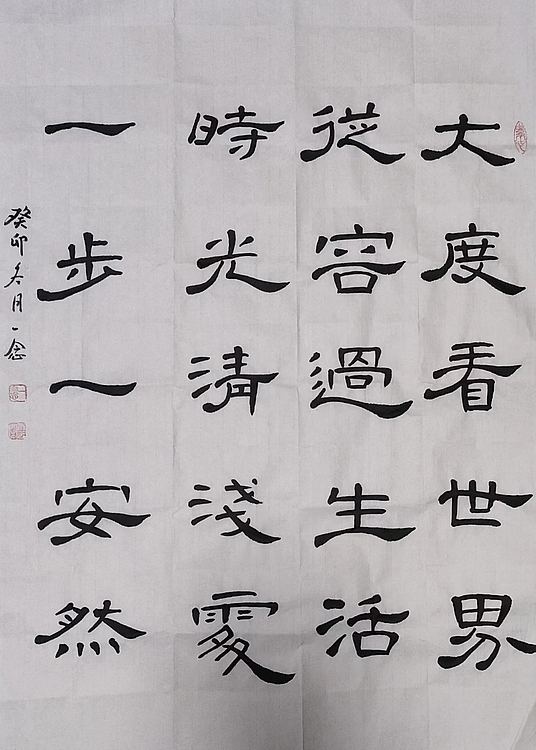 大度看世界
從容過生活
時光清淺處
一步一安然
癸卯冬月一念